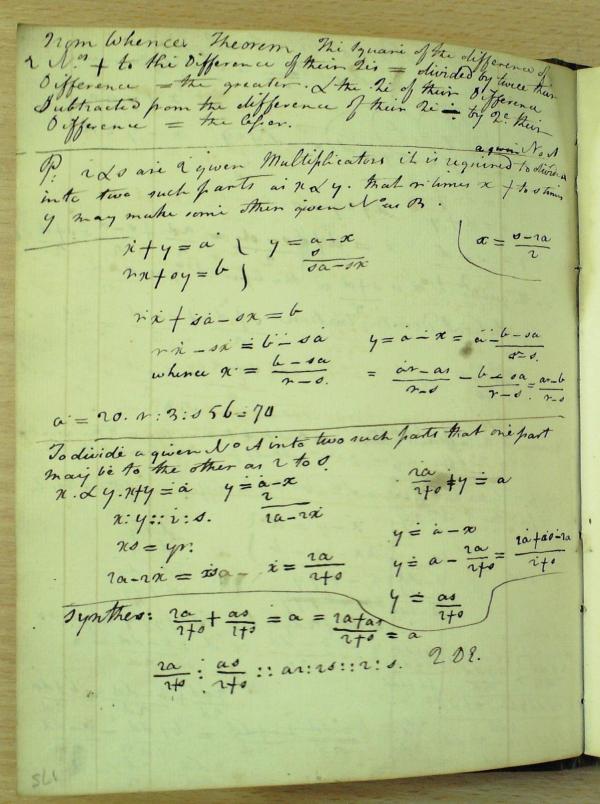 from whence Theorem The square of the difference of
2 Nos + to the Difference of their 2s = divided by twice their
Difference = the greater. & the 2 of their Difference
Subtracted from the difference of their 2 ÷ by 2ce their
Difference = the lesser.
P. r & s are 2 given Multiplicators it is required to divide a given No A
into two such parts as x & y. that r times x + to s times
y may make some other given No as B.
x + y = a } y = a - x
rx + sy = b } s
sa - sx
x = s - ra / 2
rx + sa - sx = b
rx - sx = b - sa y = a - x = a - b - sa / r - s.
whence x = b - sa / r - s. = ar - as / r - s - b - sa / r - s. = ar - b / r - s
a = 20. r : 3 : s 5 b = 70
To divide a given No A into two such parts that one part
may be to the other as r to s.
x. & y. x + y = a y = a - x ra / r + s + y = a
r
x : y :: r : s. ra - rx
xs = yr: y = a - x
ra - rx = xs x = ra / r + s y = a - ra / r + s = ra + as - ra / r + s
y = as / r + s
Synthes: ra / r + s + as / r + s = a = ra + as / r + s = a
ra / r + s : as / r + s :: ar : as :: r : s. 2 D E.